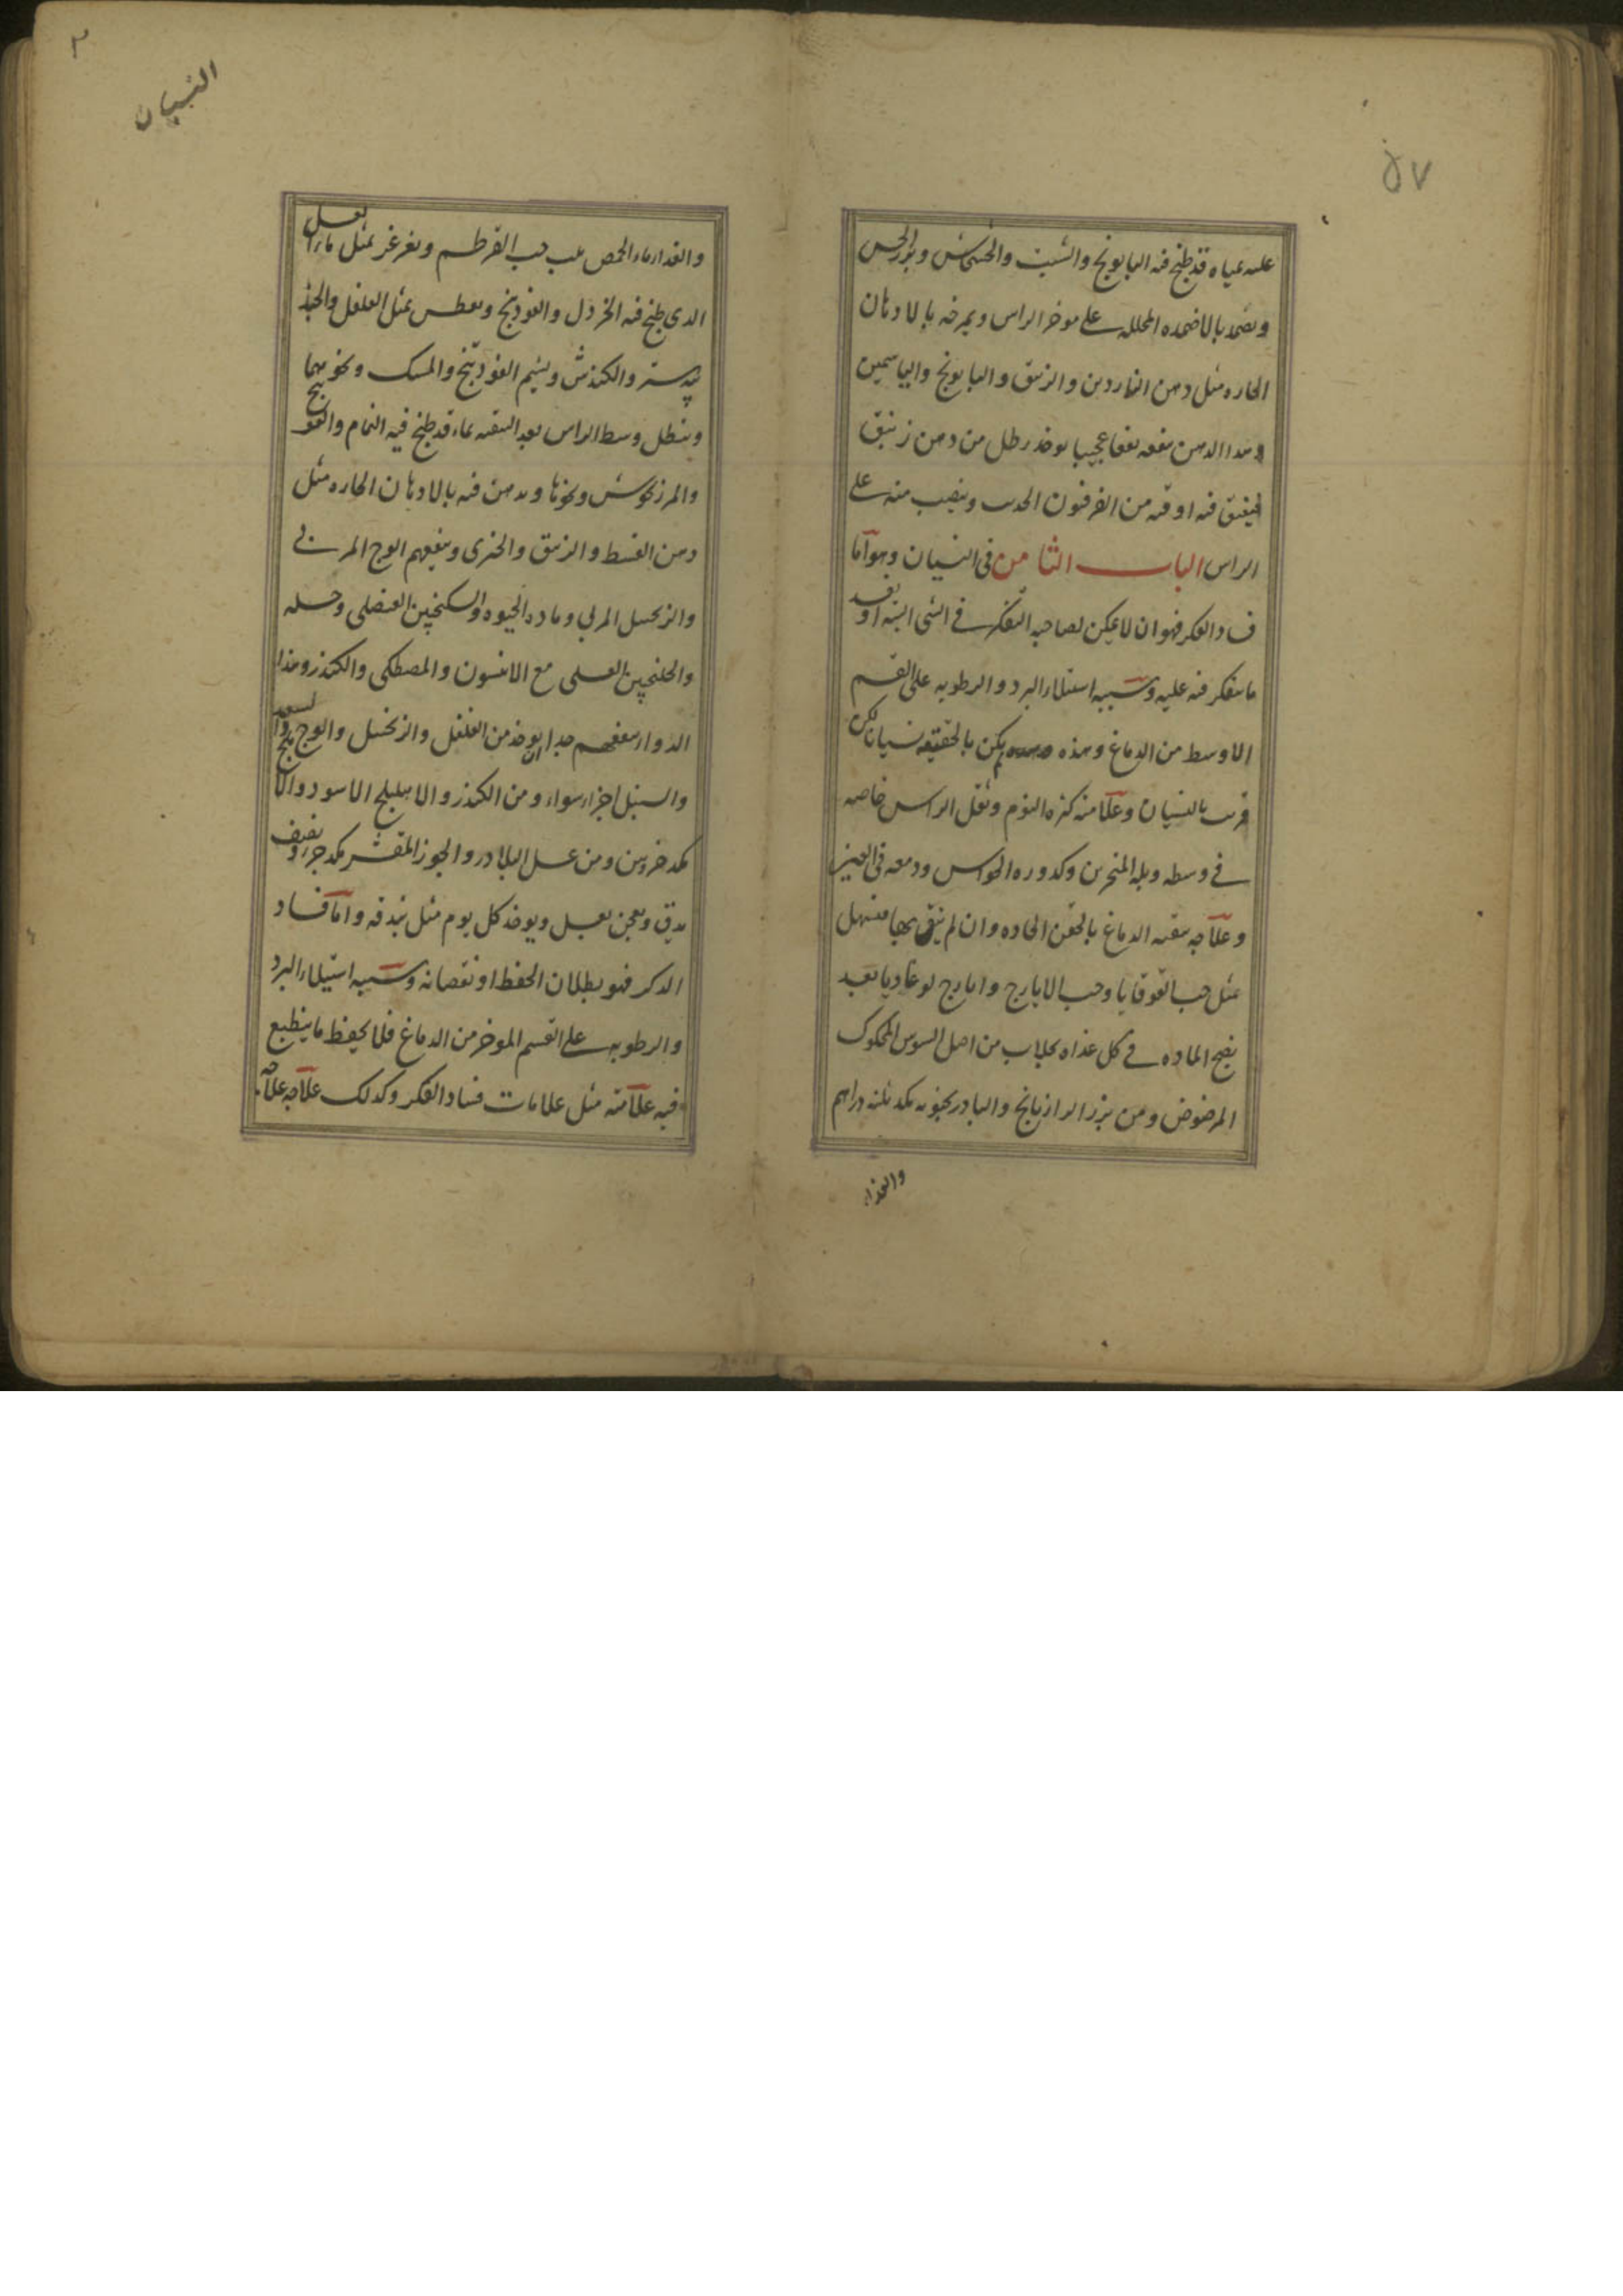 ۵۷
عليه بمياه قد طبخ فيه البابونج والشبت والخشخاش وبزر الخس
ويضمد بالاضمده المحلله على موخر الراس ويمرخه بالادهان
الحاره مثل دهن الناردين والزنبق والبابونج والياسمين
وهذا الدهن ينفعه نفعا عجيبا يوخذ رطل من دهن زنبق
فيفتق فيه اوقيه من الفرفيون الحديث ويصب منه على
الراس الباب الثامن فى النسيان وهو اما
فساد الفكر فهو ان لا يمكن لصاحبه التفكر فى الشى البته او بعد
ما يتفكر فيه عليه وسببه استيلاء البرد والرطوبه على القسم
الاوسط من الدماغ وهذه يكن بالحقيقه نسيانا لكن
قريب بالنسيان وعلامته كثره النوم وثقل الراس خاصه
فى وسطه وبله المنخرين وكدوره الحواس ودمعه فى العين
وعلاجه تنقيه الدماغ بالحقن الحاده وان لم ينق بها فمسهل
مثل حب القوقايا وحب الايارج وايارج لوغاديا بعد
نضج الماده فى كل غداه بجلاب من اصل السوس المحكوك
المرضوض ومن بزر الرازيانج والبادرنجبويه مكد ثلثه دراهم
والغذاء
۲
النسيان
والغداء ماء الحمص بلب حب القرطم ويغرغر بمثل ماء العسل
الدى طبخ فيه الخردل والفودنج ويعطس بمثل الفلفل والجند
بيدستر والكندش ويشم الفودنج والمسك ونحوهما
وينطل وسط الراس بعد التنقيه بماء قد طبخ فيه النمام والفودنج
والمرزنجوش ونحوها ويدهن فيه بالادهان الحاره مثل
دهن القسط والزنبق والخيرى وينفعهم الوج المربى
والزنجبيل المربى وماده الحيوه والسكنجبين العنصلى وخله
والجلنجبين العسلى مع الانيسون والمصطكى والكندر وهذا
الدواء ينفعهم جدا يوخذ من الفلفل والزنجبيل والوج والسعد
والسنبل اجزاء سواء ومن الكندر والاهليلج الاسود والاملج
مكد جزوين ومن عسل البلادر والجوز المقشر مكد جزء ونصف
يدق ويعجن بعسل ويوخذ كل يوم مثل بندقه واما فساد
الدكر فهو بطلان الحفظ او نقصانه وسببه استيلاء البرد
والرطوبه على القسم الموخر من الدماغ فلا يحفظ ما ينطبع
فيه علامته مثل علامات فساد الفكر وكدلك علاجه علاجه